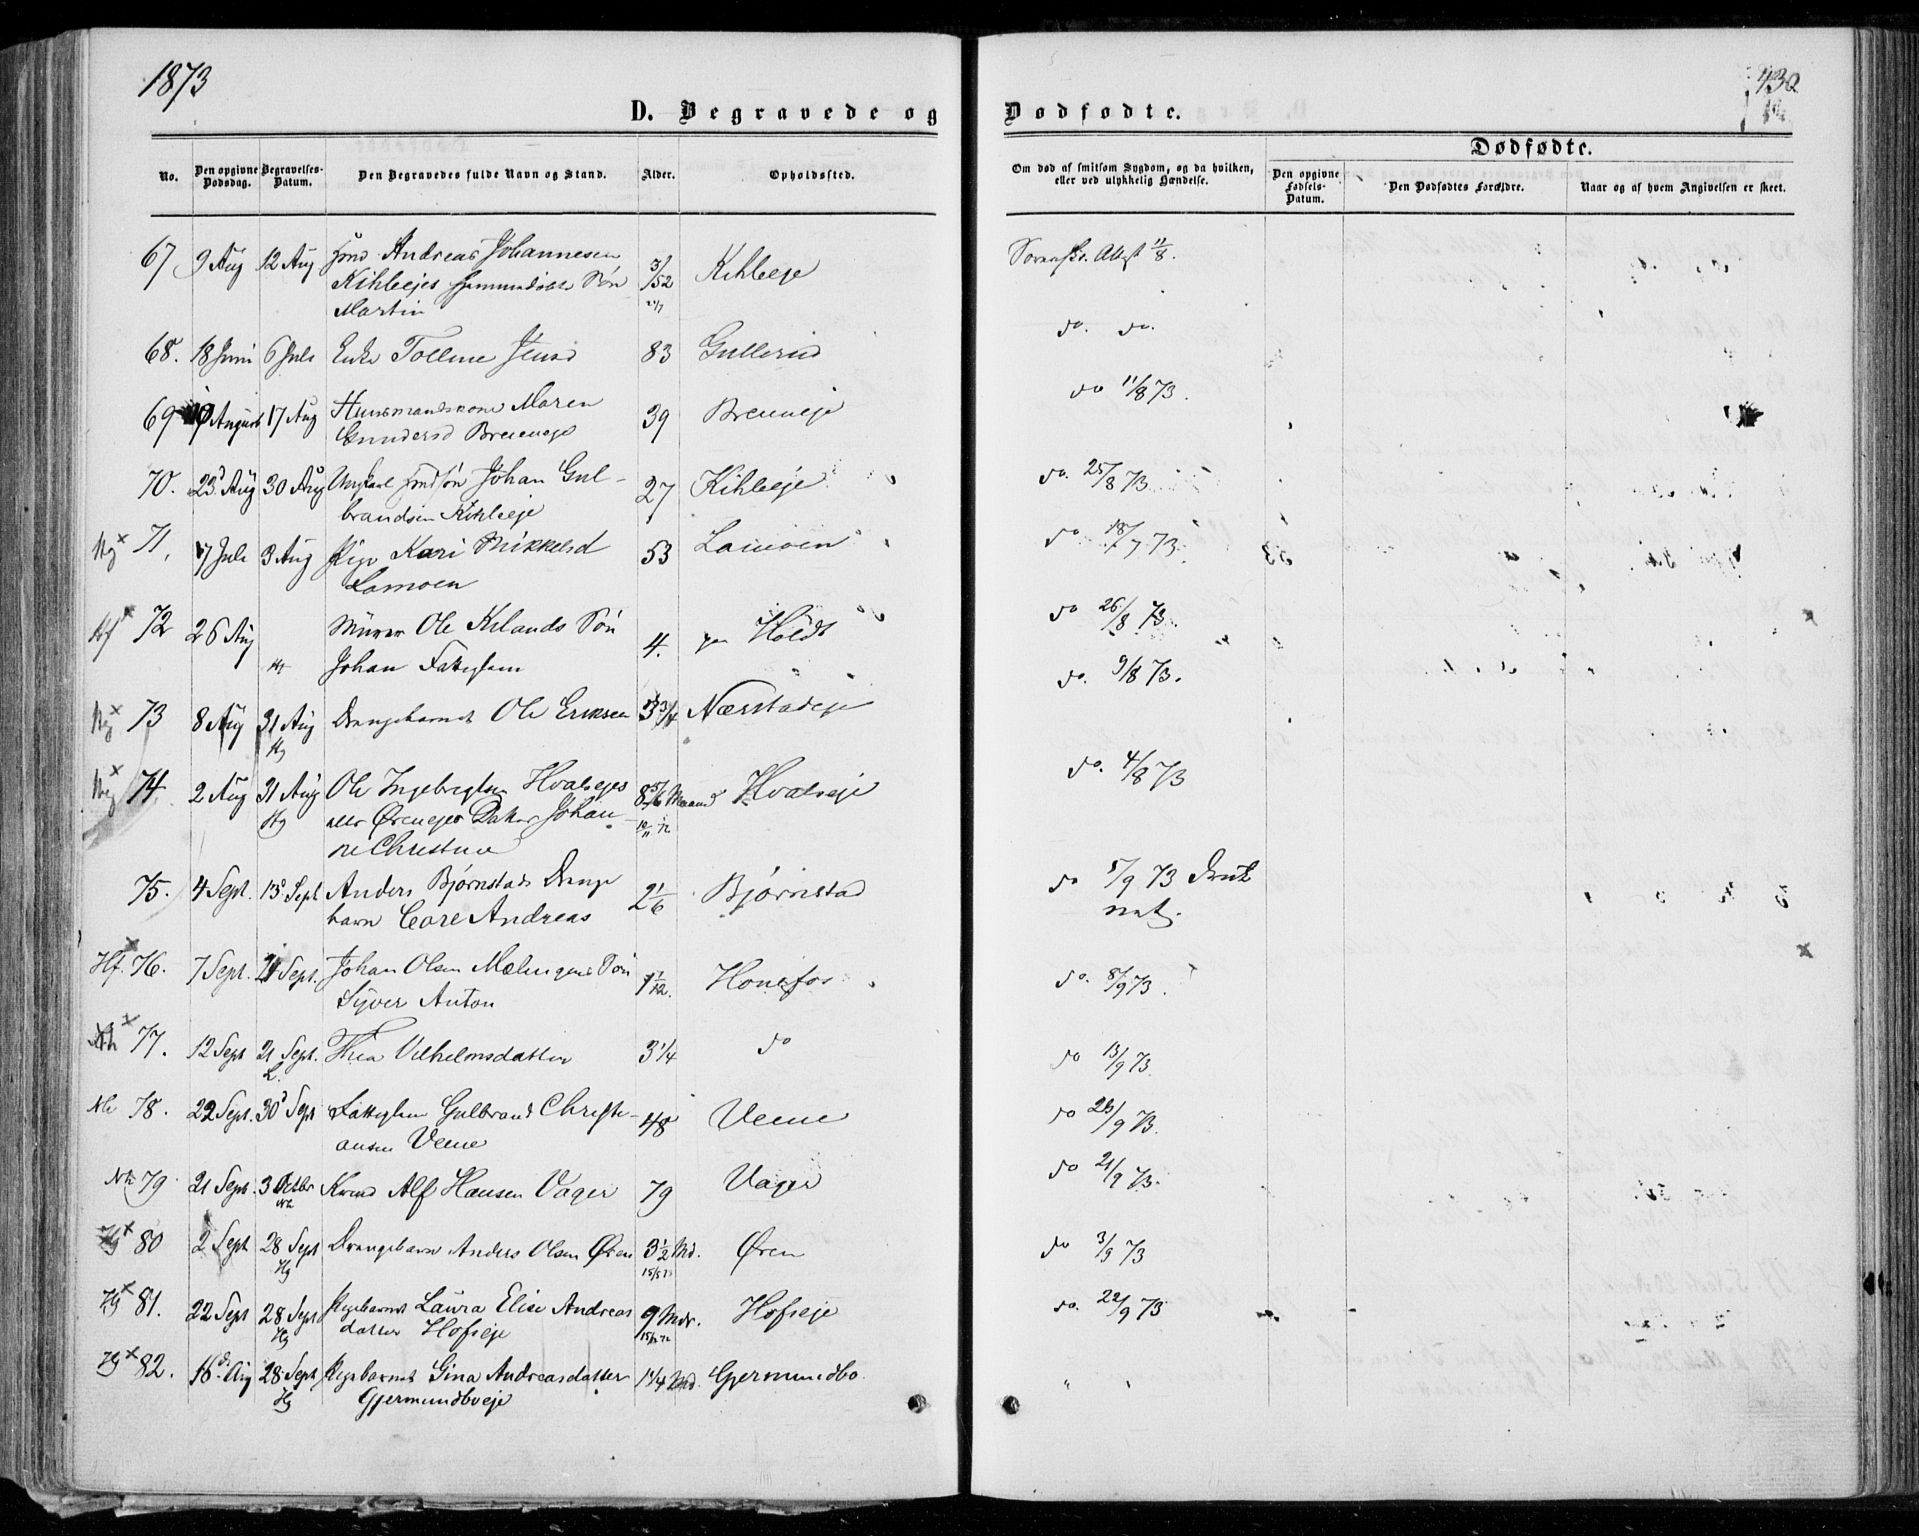 1873
430
D. Begravede og
Dødfødte.
Dødfødte.
No.
Den opgivne Dødsdag.
Begravelses-Datum.
Den Begravedes fulde Navn og Stand.
Alder.
Opholdssted.
Om død af smitsom Sygdom, og da hvilken, eller ved ulykkelig Hændelse.
Den opgivne Fødsels-Datum.
Den Dødfødtes Forældre.
Naar og af hvem Angivelsen er skeet.
67 9 Aug 12 Aug Andreas Johannesen 3/52 Kihleeje Attest 11/8.
Kihleejes Søn
Martin
68. 18 Juni 6 Juli Enke 83 Gullerud do. do.
69 August 17 Aug Huusmandskone Maren 39 Breneeje do 11/8 73.
Gundersd Breneeje
70. 23 Aug 30 Aug Ungkarl Johan Gul- 27 Kihleeje do. 25/8 73
brandsen Kihleeje
Hg x 71. 7 Juli 3 Aug Pige Kari Mikkelsd 53 Lamoen do 18/7 73.
Lamoen
Hf x 72 26 Aug Murer Ole Søn 4. do 26/8 73.
Johan Fattiglem
Hg x 73 8 Aug 31 Aug Drengebarnet Ole Eriksen 3 3/4 Nærstadeje do. 9/8 73.
Hg
Hg x 74 2 Aug 31 Aug Ole Ingebregtsen Hvalsejes 8 5/6 Maaned Hvalseje do. 4/8 73
Hg eller Ørenejes Datter Johan-
ne Christine
75. 4 Sept. 13 Sept Anders Bjørnstads Drenge 2 1/6 Bjørnstad do 5/9 73
barn Carl Andreas
Hf. x 76. 7 Sept. 21 Sept. Johan Olsen Søn 1 1/12. Hønefos do. 8/9 73.
Syver Anton
x 77. 12 Sept 21 Sept. Thea Vilhelmsdatter 3 1/4 do do 13/9 73.
Nh 78. 22 Sept. 30 Sept Fattiglem Gulbrand Christi- 48 Veme do 23/9 73.
ansen Veme
Nh 79 21 Sept. 3 Octbr Alf Hansen Vager 79 Vager do 21/9 73.
Nh
Hg x 80 2 Sept 28 Sept Drengebarn Anders Olsen Øren 3 1/2 Md. Øren do 3/9 73
Hg
Hg x 81. 22 Sept 28 Sept Pigebarnet Laura Elise Andreas 9 Mdr. Hofseje do. 22/9 73
Hg datter Hofseje
Hg x 82. 16 Aug 28 Sept Pigebarnet Gina Andreasdatter 1 1/4 Md. Gjermundbo
Hg Gjermundboeje